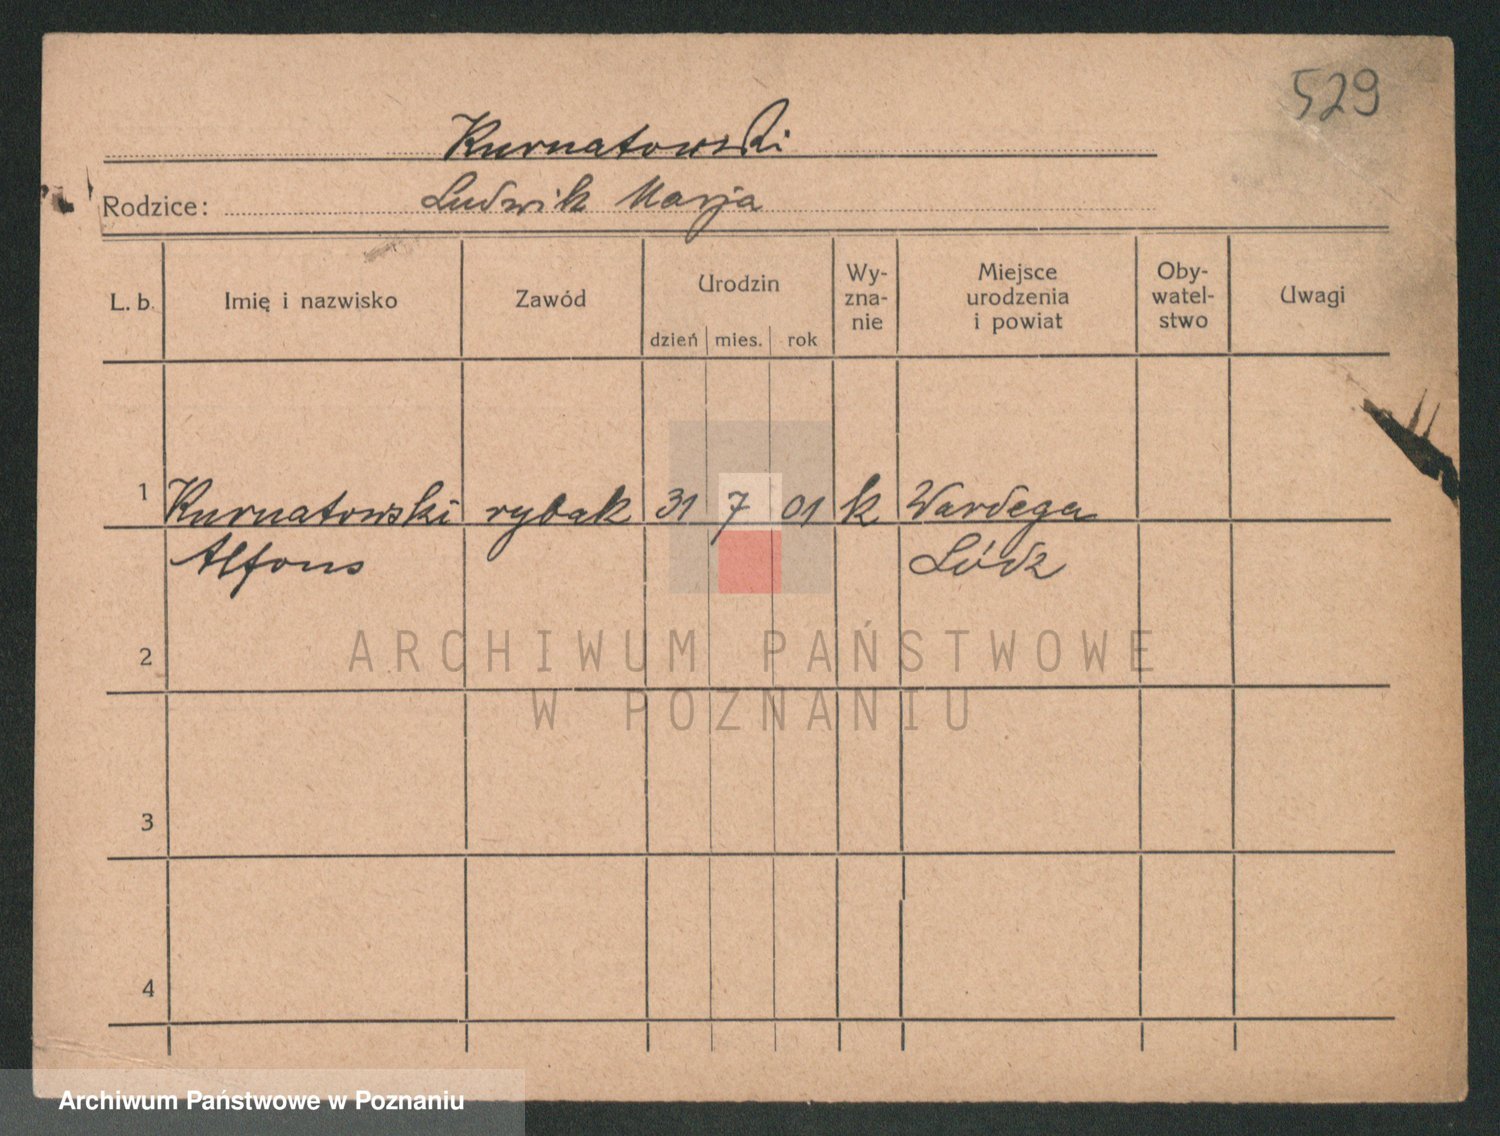 529
Kurnatowski
Rodzice: Ludwik Marja
L. b. Imię i nazwisko Zawód Urodzin Wy-zna-nie Miejsce urodzenia i powiat Oby-watel-stwo Uwagi
dzień mies. rok
1 Kurnatowski rybak 31 7 01 k Wardega
Alfons Łódz
2
ARCHIWUM PAŃSTWOWE
W POZNANIU
3
4
Archiwum Państwowe w Poznaniu